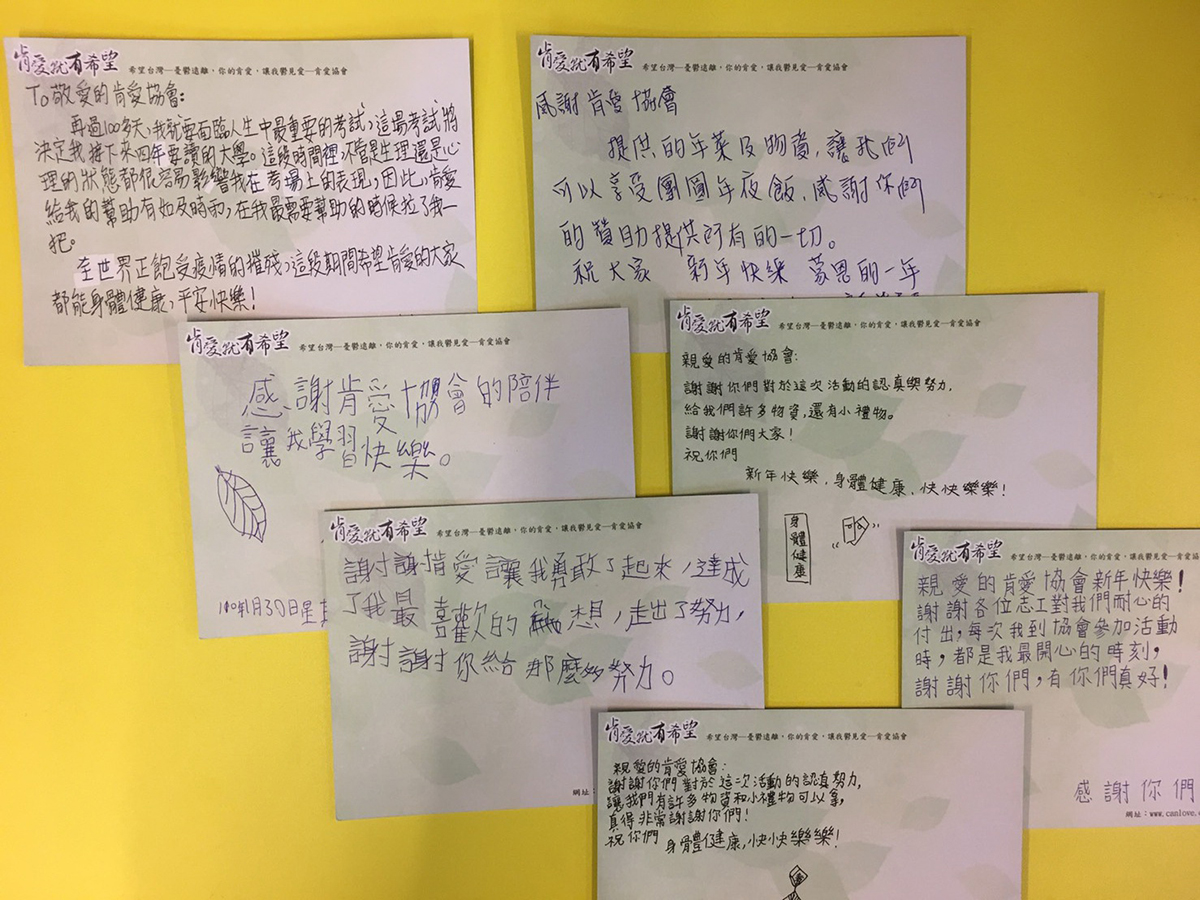 肯愛就有希望
希望台灣—憂鬱遠離，你的肯愛，讓我鬱見愛—肯愛協會
To敬愛的肯愛協會：
再過100多天，我就要面臨人生中最重要的考試，這場考試將
決定我接下來四年要讀的大學。這段時間裡，不管是生理還是心
理的狀態都很容易影響我在考場上的表現，因此，肯愛
給我的幫助有如及時雨，在我最需要幫助的時候拉了我一
把。
全世界正飽受疫情的摧殘，這段期間希望肯愛的大家
都能身體健康，平安快樂！
肯愛就有希望
希望台灣—憂鬱遠離，你的肯愛，讓我鬱見愛—肯愛協會
感謝肯愛協會
提供的年菜及物資，讓我們
可以享受團圓年夜飯，感謝你們
的贊助提供所有的一切。
祝大家 新年快樂 蒙恩的一年
肯愛就有希望
希望台灣—憂鬱遠離，你的肯愛，讓我鬱見愛—肯愛協會
感謝肯愛協會的陪伴
讓我學習快樂。
月30日星
肯愛就有希望
希望台灣—憂鬱遠離，你的肯愛，讓我鬱見愛—肯愛協會
親愛的肯愛協會：
謝謝你們對於這次活動的認真與努力，
給我們許多物資，還有小禮物。
謝謝你們大家！
祝你們
新年快樂，身體健康、快快樂樂！
身體健康
肯愛就有希望
希望台灣—憂鬱遠離，你的肯愛，讓我鬱見愛—肯愛協會
謝謝肯愛讓我勇敢了起來，達成
了我最喜歡的 想，走出了努力，
謝謝你給那麼多努力。
網址：
肯愛就有希望
希望台灣—憂鬱遠離，你的肯愛，讓我鬱見愛—肯愛協
親愛的肯愛協會新年快樂！
謝謝各位志工對我們耐心的
付出，每次我到協會參加活動
時，都是我最開心的時刻，
謝謝你們，有你們真好！
感謝你們
網址：www.canlove.
肯愛就有希望
希望台灣—憂鬱遠離，你的肯愛，讓我鬱見愛—肯愛協會
親愛的肯愛協會：
謝謝你們對於這次活動的認真努力，
讓我們有許多物資和小禮物可以拿，
真得非常謝謝你們！
祝你們 身體健康，快快樂樂！